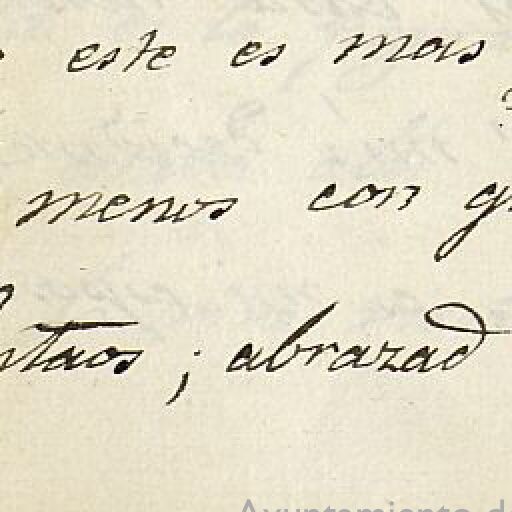 este es mas
menos con
ntaos; abrazad
Ayuntamiento d